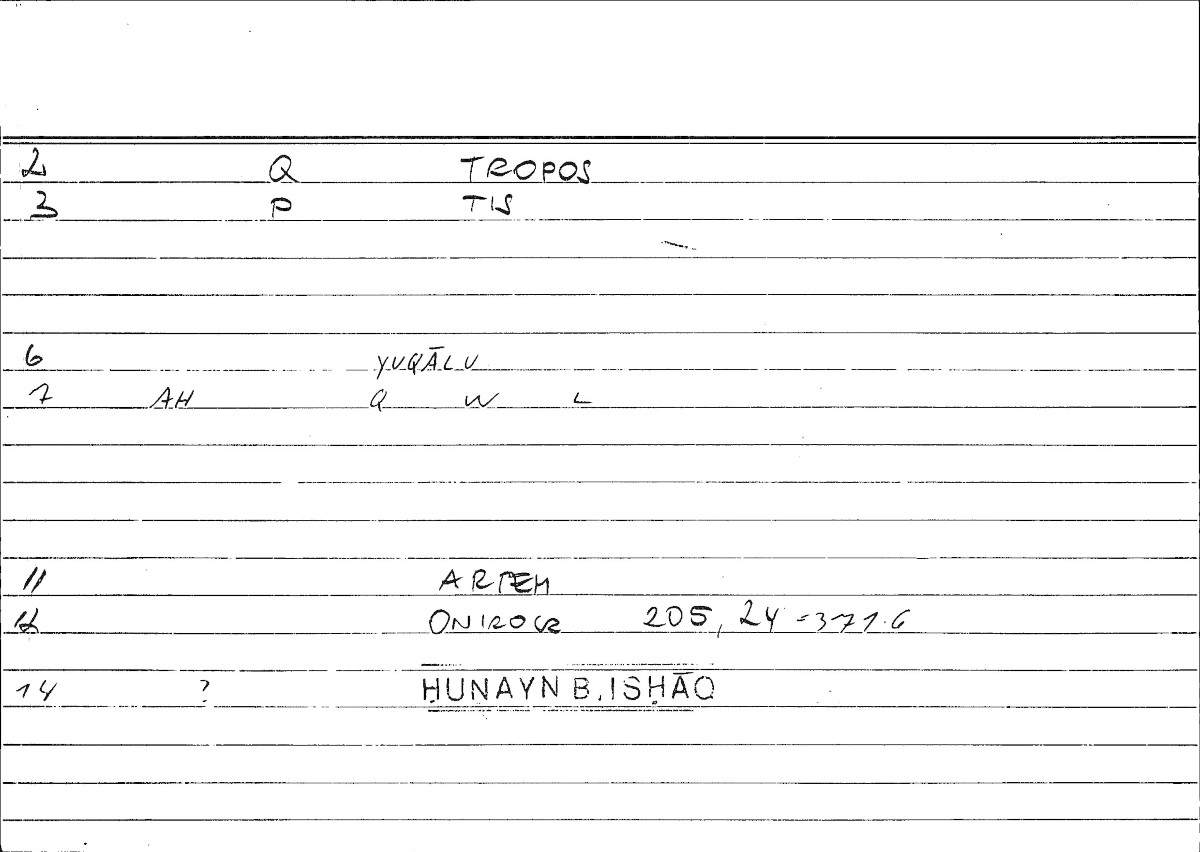 2 Q TROPOS
3 P TIS
6 YUQĀLU
7 AH Q W L
11 ARTEM
12 ONIROCR 205, 24 = 371.6
14 ? ḤUNAYN B. ISḤĀQ